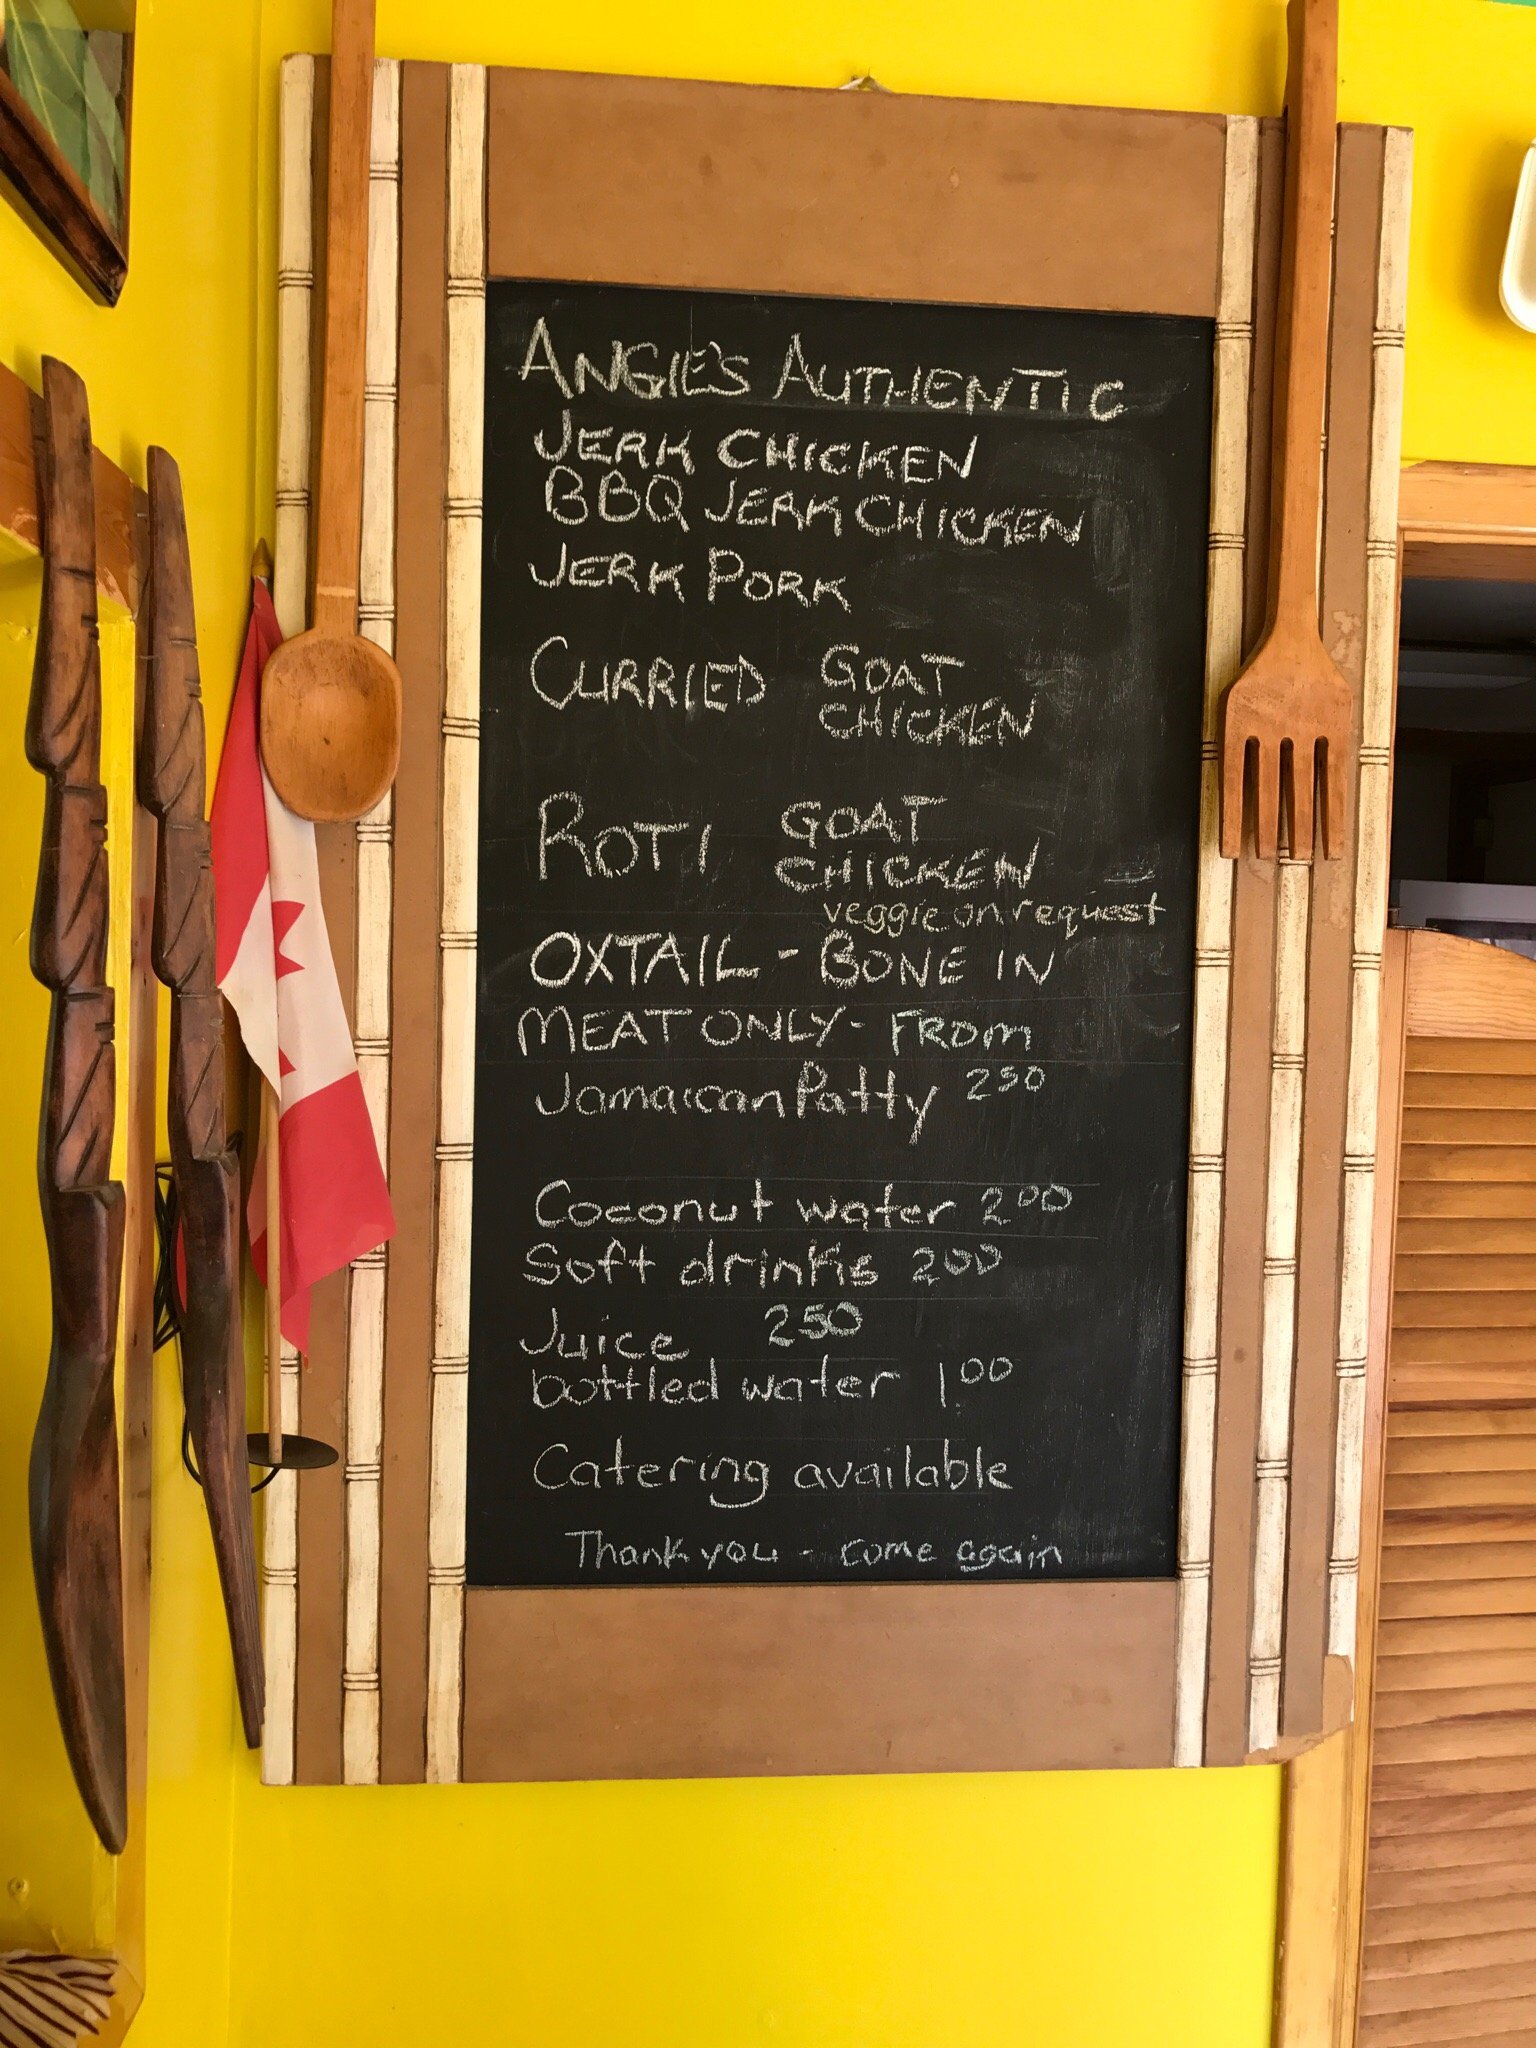 ANGIE'S AUTHENTIC
JERK CHICKEN
BBQ JERK CHICKEN
JERK PORK
CURRIED GOAT
CHICKEN
ROTI GOAT
CHICKEN
veggie on request
OXTAIL - BONE IN
MEAT ONLY - FROM
Jamaican Patty 250
Coconut water 200
Soft drinks 200
Juice 250
bottled water 1.00
Catering available
Thank you - come again